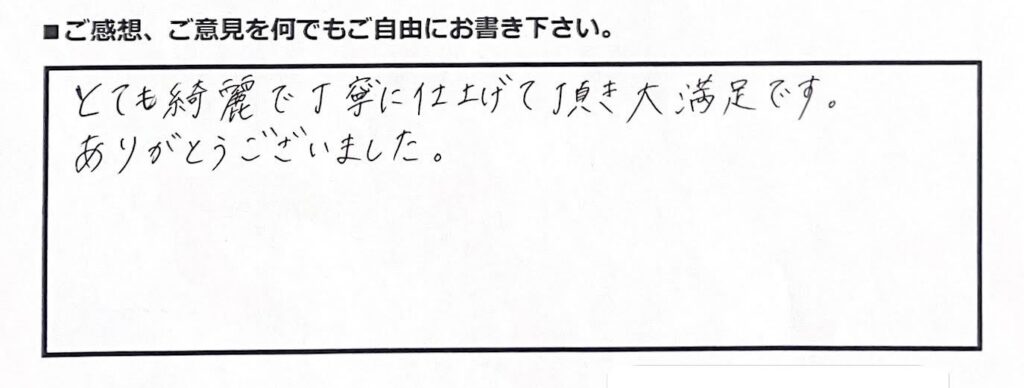 ■ご感想、ご意見を何でもご自由にお書き下さい。
とても綺麗で丁寧に仕上げて頂き大満足です。
ありがとうございました。